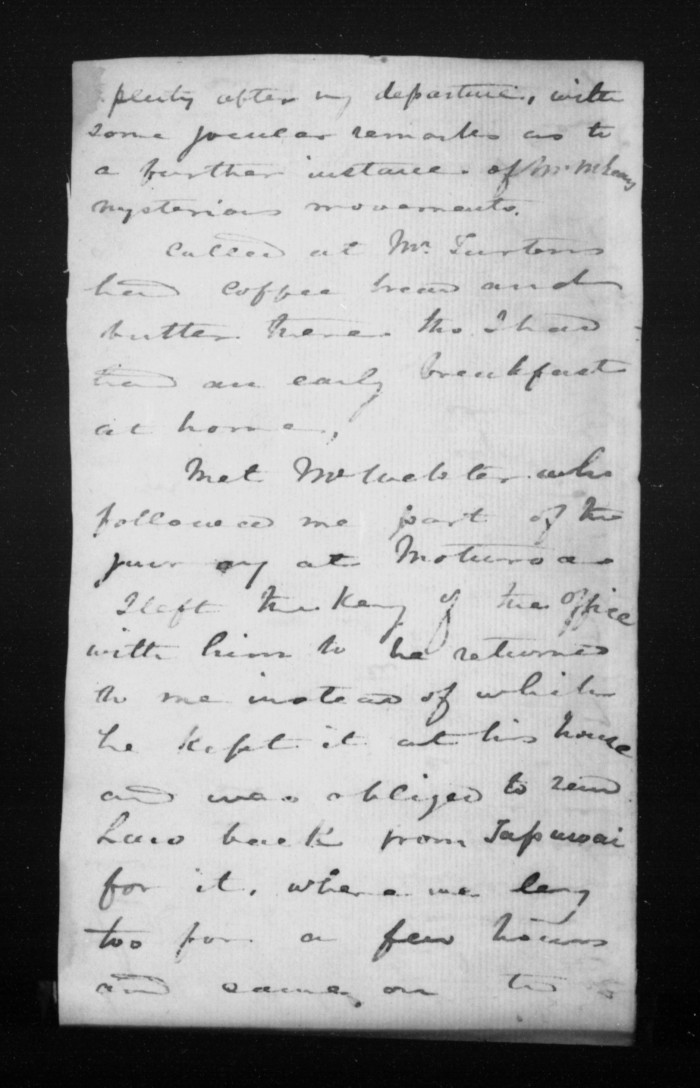 plenty after my departure, with
some jocular remarks as to
a further instance of Mr McLeans
mysterious movements.
Called at Mr. Turtons
had coffee bread and
butter there tho I had
had an early breakfast
at home,
Met Mr Webster who
followed me part of the
jour ney at Moturoa
I left the Key of the office
with him to be returned
to me instead of which
he kept it at his house
and was obliged to send
back from Tapuwai
for it, where we
too for a few hours
and on to